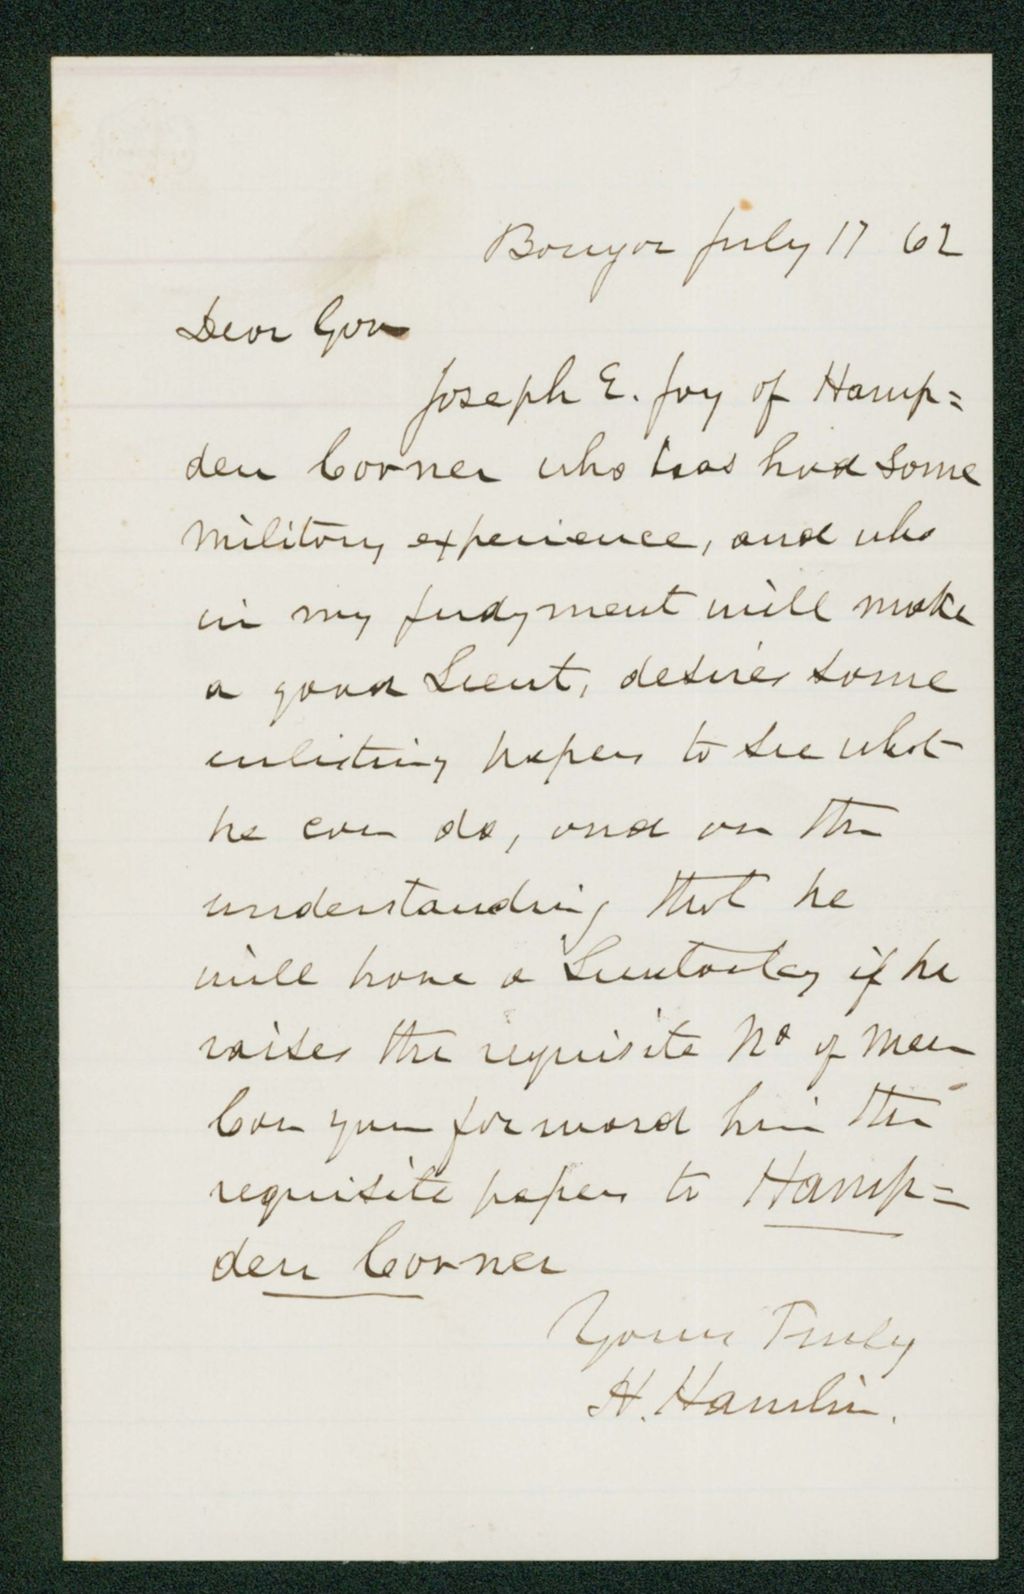 Bangor July 17 62
Dear Gov
Joseph E. Joy of Hamp=
den Corner who has had some
military experience, and who
in my judgment will make
a good Lieut, desires some
enlisting papers to see what
he can do, and on the
understanding that he
will have a Lieutantcy if he
raises the requisite No of men
Can you forward him the
requisite papers to Hamp=
den Corner
Yours Truly
H. Hamlin.